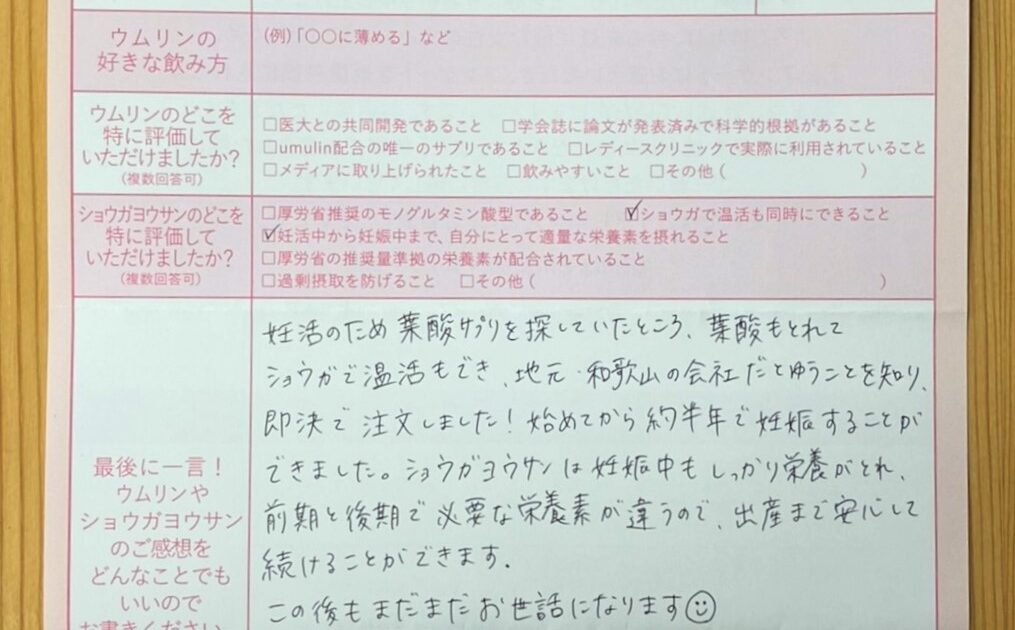 ウムリンの
好きな飲み方
(例)「〇〇に薄める」など
ウムリンのどこを
特に評価して
いただけましたか?
(複数回答可)
□医大との共同開発であること □学会誌に論文が発表済みで科学的根拠があること
□umulin配合の唯一のサプリであること □レディースクリニックで実際に利用されていること
□メディアに取り上げられたこと □飲みやすいこと □その他 ( )
ショウガヨウサンのどこを
特に評価して
いただけましたか?
(複数回答可)
□厚労省推奨のモノグルタミン酸型であること ☑ショウガで温活も同時にできること
☑妊活中から妊娠中まで、自分にとって適量な栄養素を摂れること
□厚労省の推奨量準拠の栄養素が配合されていること
□過剰摂取を防げること □その他 ( )
最後に一言!
ウムリンや
ショウガヨウサン
のご感想を
どんなことでも
いいので
お書きください。
妊活のため葉酸サプリを探していたところ、葉酸もとれて
ショウガで温活もでき、地元・和歌山の会社だとゆうことを知り、
即決で注文しました!始めてから約半年で妊娠することが
できました。ショウガヨウサンは妊娠中もしっかり栄養がとれ、
前期と後期で必要な栄養素が違うので、出産まで安心して
続けることができます.
この後もまだまだお世話になります☺